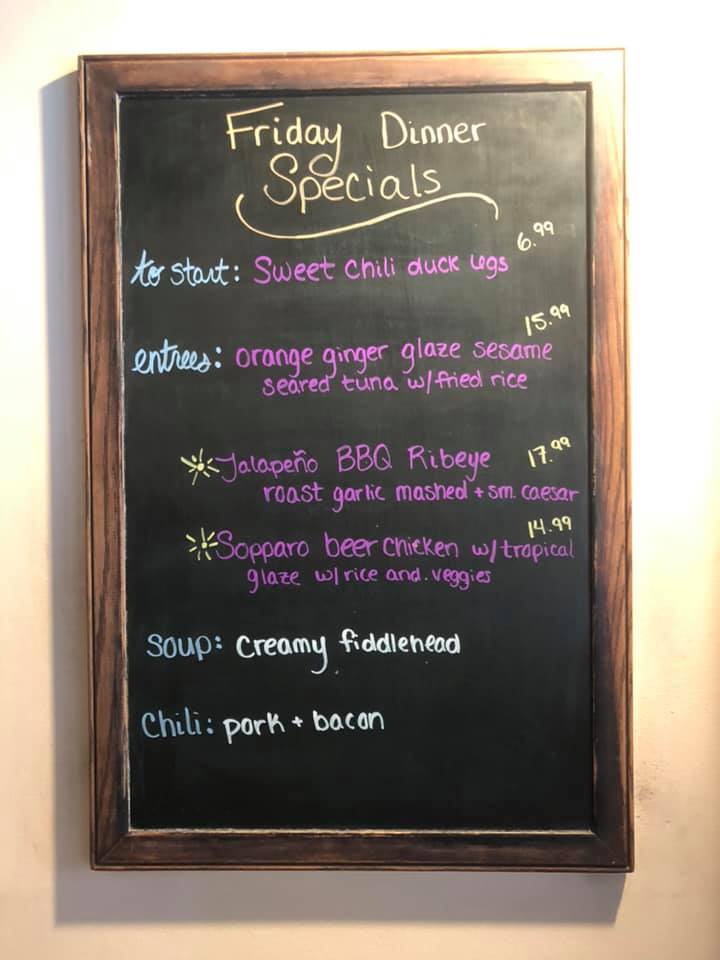 Friday Dinner
Specials
6.99
to start: Sweet chili duck legs
15.99
entrees: orange ginger glaze sesame
seared tuna w/fried rice
Jalapeño BBQ Ribeye 17.99
roast garlic mashed + sm. caesar
14.99
Sopparo beer chicken w/tropical
glaze w/rice and.veggies
Soup: Creamy fiddlehead
Chili: pork + bacon